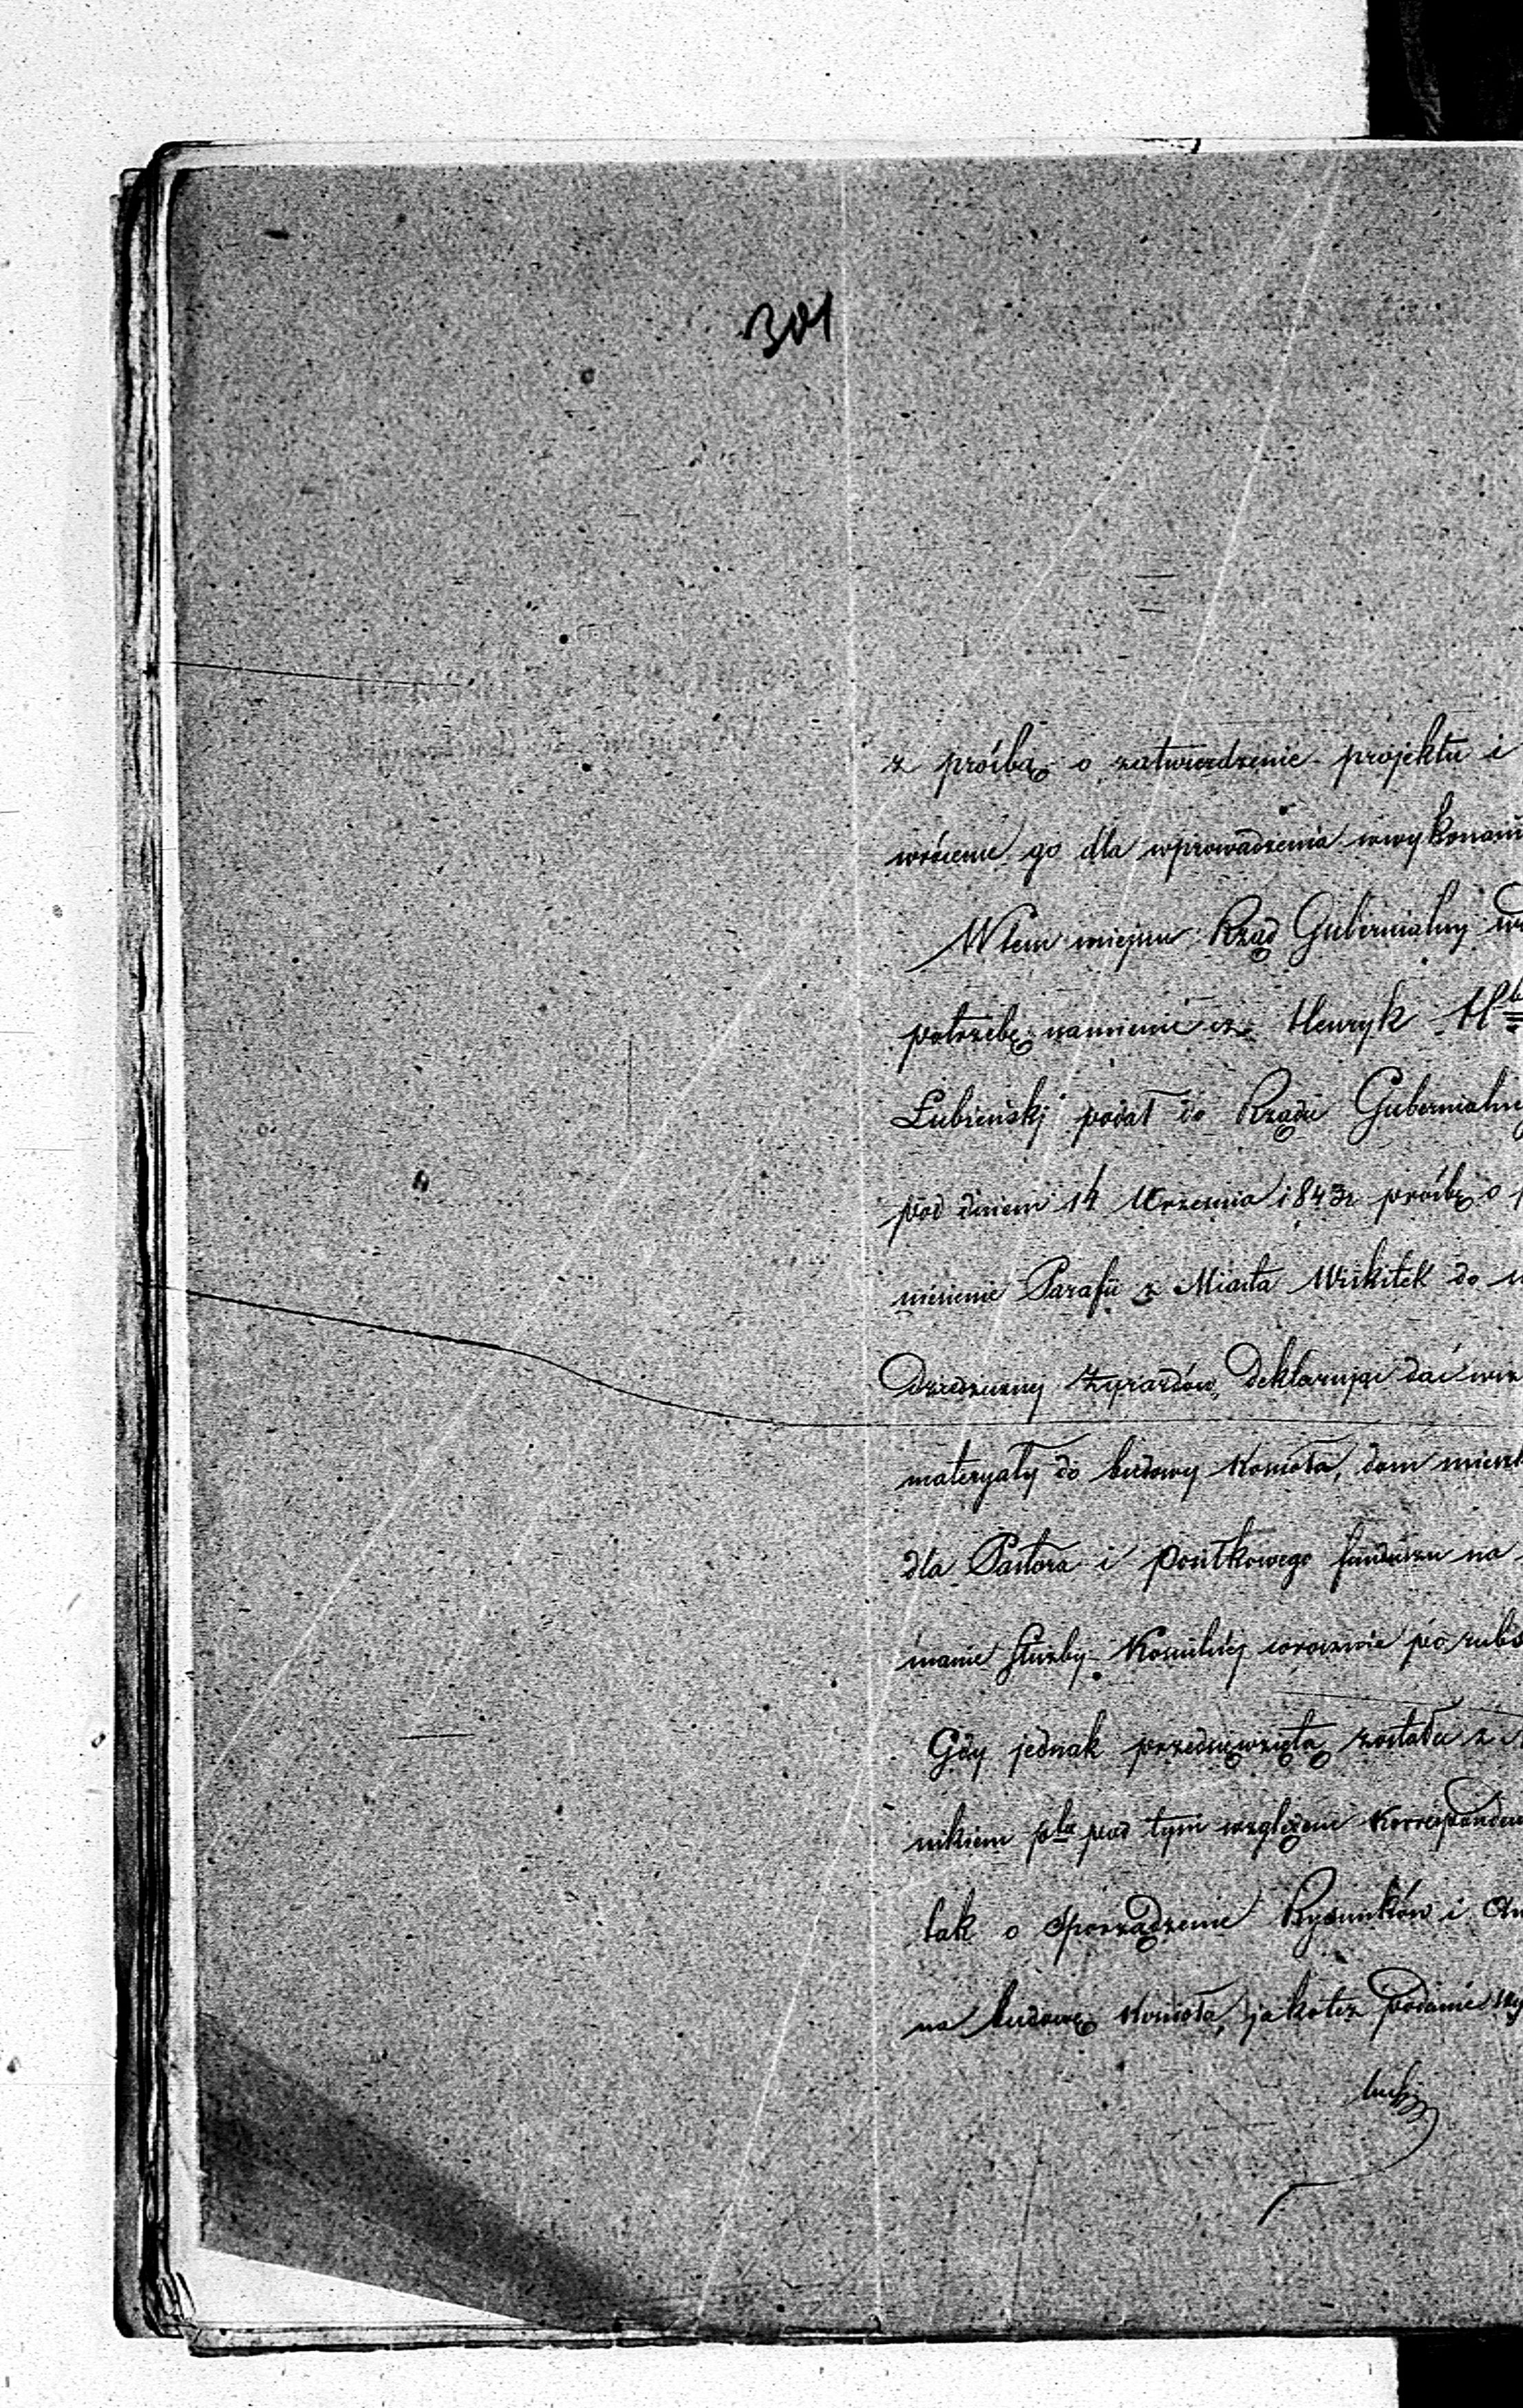 301
z prośbą o zatwierdzenie projektu i
wrócenie go dla wprowadzenia w wykonani
W tem miejscu Rząd Gubernialny
potrzebę namienić iż Henryk Hr
Łubieński podał do Rządu Gubernialne
pod dniem 14 Września 1843 r prośbę o
niesienie Parafii z Miasta Wiskitek do
Dziedzicznej Żyrardów, deklarując dać
materyały do budowy Kościoła, dom mieszk
dla Pastora i posiłkowego funduszu na
manie służby Kościelnej corocznie po rubs
Gdy jednak przedsięwziętą została z
nikiem pta pod tym względem Korrespondenc
tak o sporządzenie Rysunków i An
na budowę Kościoła, jakoteż podanie